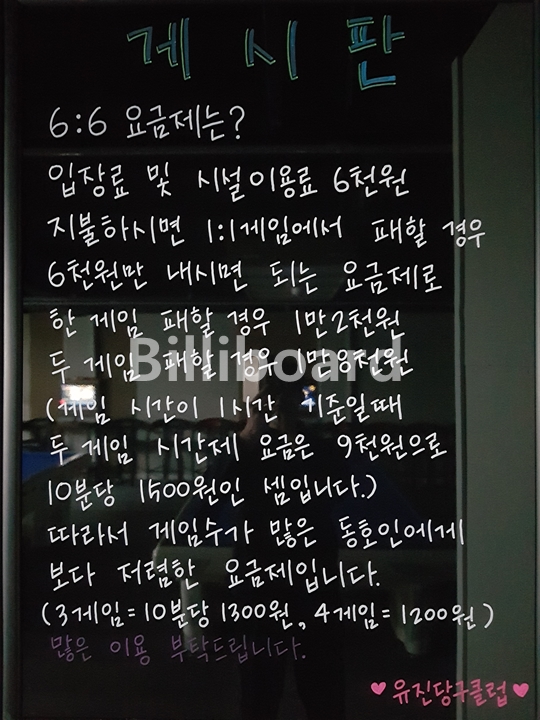 게시판
6:6 요금제는?
입장료 및 시설이용료 6천원
지불하시면 1:1게임에서 패할 경우
6천원만 내시면 되는 요금제로
한 게임 패할 경우 1만2천원
두 게임 패할 경우 1만8천원
Billiboard
(게임 시간이 1시간 기준일때
두 게임 시간제 요금은 9천원으로
10분당 1500원인 셈입니다.)
따라서 게임수가 많은 동호인에게
보다 저렴한 요금제입니다.
(3게임=10분당 1300원, 4게임=1200원)
많은 이용 부탁드립니다.
♥유진당구클럽♥